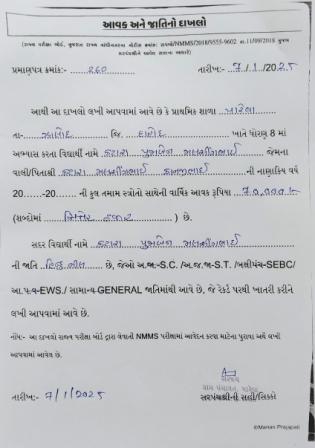 આવક અને જાતિનો દાખલો
(રાજ્ય પરીક્ષા બોર્ડ, ગુજરાત રાજ્ય ગાંધીનગરના નોટીસ ક્રમાંક: રાપબો/NMMS/2018/9555-9602 તા.11/09/2018 મુજબ
સરપંચશ્રીને આવેલ સત્તાના આધારે)
પ્રમાણપત્ર ક્રમાંક:- 260 તારીખ:- 7/1/2025
આથી આ દાખલો લખી આપવામાં આવે છે કે પ્રાથમિક શાળા
તા- ઝાલોદ જિ. દાહોદ ખાતે ધોરણ 8 માં
અભ્યાસ કરતા વિદ્યાર્થી નામે કટારા જેમના
વાલી/પિતાશ્રી કટારા ની નાણાકિય વર્ષ
20......-20...... ની કુલ તમામ સ્ત્રોતો સાથેની વાર્ષિક આવક રૂપિયા 70,000/-
(શબ્દોમાં સિત્તેર હજાર ) છે.
સદર વિદ્યાર્થી નામે કટારા
ની જાતિ હિન્દુ ભીલ છે, જેઓ અ.જા.-S.C. /અ.જ.જા-S.T. /બક્ષીપંચ-SEBC/
આ.પ.વ-EWS./ સામાન્ય GENERAL જાતિમાંથી આવે છે, જે રેકર્ડ પરથી ખાતરી કરીને
લખી આપવામાં આવે છે.
નોંધ:- આ દાખલો રાજ્ય પરીક્ષા બોર્ડ દ્વારા લેવાતી NMMS પરીક્ષામાં આવેદન કરવા માટેના પુરાવા અર્થે લખી
આપવામાં આવેલ છે.
તારીખ:- 7/1/2025
સરપંચ
ગ્રામ પંચાયત
સરપંચશ્રીની સહી/સિક્કો
©Manan Prajapati